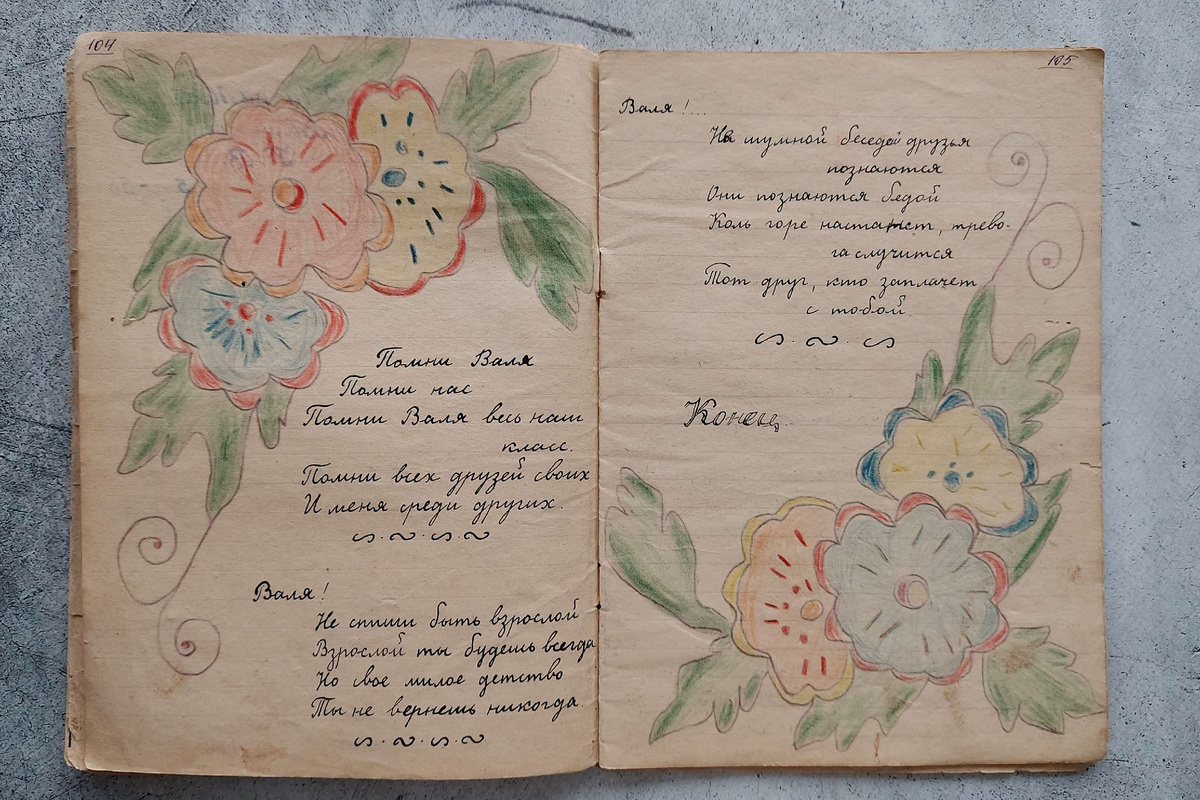 104
Помни Валя
Помни нас
Помни Валя весь наш
класс.
Помни всех друзей своих
И меня среди других.
Валя!
Не спиши быть взрослой
Взрослой ты будешь всегда
Но свое милое детство
Ты не вернешь никогда
105
Валя!...
Не шумной беседой друзья
познаются
Они познаются бедой
Коль горе настанет, трево-
га случится
Тот друг, кто заплачет
с тобой.
Конец.